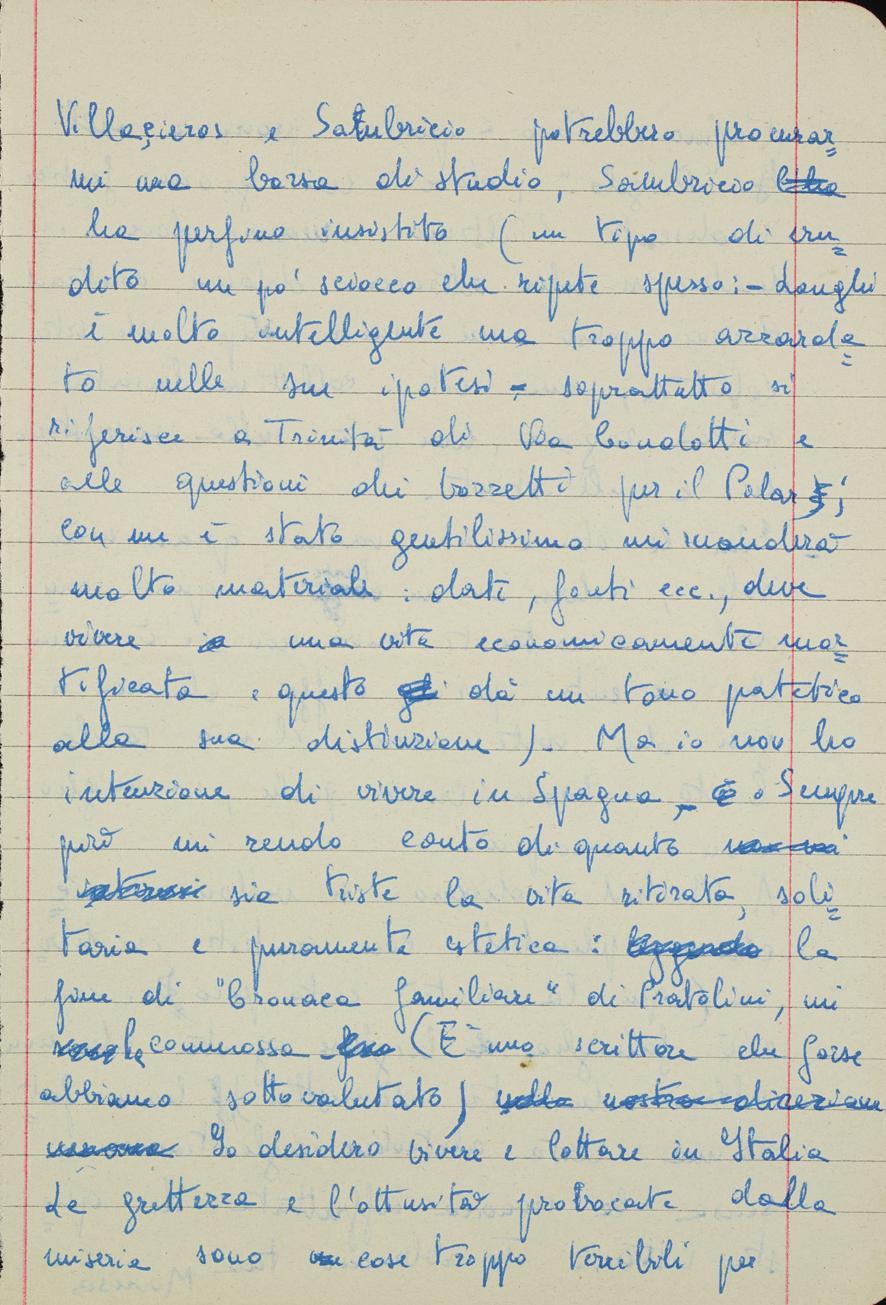 Villaçieros e Salubricio potrebbero procurar=
mi una borsa di studio, Sambricio
ha perfino insistito (un tipo di eru=
dito un po' sciocco che ripete spesso: - Longhi
è molto intelligente ma troppo azzarda=
to nelle sue ipotesi - soprattutto si
riferisce a Trinità di Via Condotti e
alle questioni dei bozzetti per il Pilar;
con me è stato gentilissimo mi manderà
molto materiale: date, fonti ecc., deve
vivere una vita economicamente mor=
tificata e questo dà un tono patetico
alla sua distinzione). Ma io non ho
intenzione di vivere in Spagna. Sempre
però mi rendo conto di quanto
sia triste la vita ritirata, soli=
taria e puramente estetica: la
fine di "Cronaca familiare" di Pratolini, mi
ha commossa (È uno scrittore che forse
abbiamo sottovalutato) nella nostra
Io desidero vivere e lottare in Italia
La grettezza e l'ottusità provocate dalla
miseria sono cose troppo terribili per